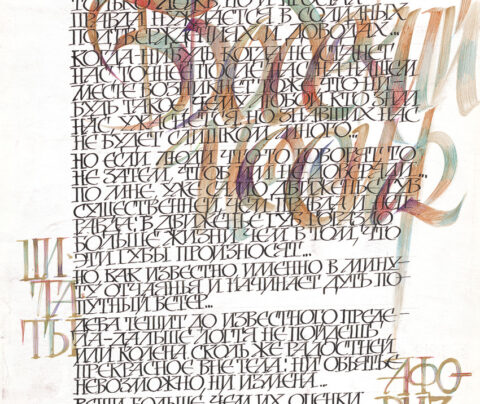 ТОЛЬКО ЛОЖЬ, НО И ПРОСТАЯ
ПРАВДА НУЖДАЕТСЯ В СОЛИДНЫХ
ПОДТВЕРЖДЕНИЯХ И ДОВОДАХ...
КОГДА-НИБУДЬ, КОГДА НЕ СТАНЕТ
НАС, ТОЧНЕЕ ПОСЛЕ НАС, НА НАШЕМ
МЕСТЕ ВОЗНИКНЕТ ТОЖЕ ЧТО-НИ-
БУДЬ ТАКОЕ, ЧЕМУ ЛЮБОЙ, КТО ЗНАЛ
НАС, УЖАСНЕТСЯ. НО ЗНАВШИХ НАС
НЕ БУДЕТ СЛИШКОМ МНОГО...
НО ЕСЛИ ЛЮДИ ЧТО-ТО ГОВОРЯТ, ТО
НЕ ЗАТЕМ, ЧТОБ ИМ
ПО МНЕ, УЖЕ САМО ДВИЖЕНЬЕ ГУБ
СУЩЕСТВЕННЕЙ, ЧЕМ ПРАВДА И НЕП-
РАВДА: В ДВИЖЕНЬЕ ГУБ ГОРАЗДО
БОЛЬШЕ ЖИЗНИ, ЧЕМ В ТОМ, ЧТО
ЭТИ ГУБЫ ПРОИЗНОСЯТ...
НО КАК ИЗВЕСТНО, ИМЕННО В МИНУ-
ТУ ОТЧАЯНЬЯ И НАЧИНАЕТ ДУТЬ ПО-
ПУТНЫЙ ВЕТЕР...
ДЕВА ТЕШИТ ДО ИЗВЕСТНОГО ПРЕДЕ-
ЛА – ДАЛЬШЕ ЛОКТЯ НЕ ПОЙДЕШЬ
ИЛИ КОЛЕНА. СКОЛЬ ЖЕ РАДОСТНЕЙ
ПРЕКРАСНОЕ ВНЕ ТЕЛА: НИ ОБЪЯТЬЕ
НЕВОЗМОЖНО, НИ ИЗМЕНА...
ВЕЩИ БОЛЬШЕ, ЧЕМ ИХ ОЦЕНКИ.
ЦИ-
ТА-
ТЫ
АФО-
РИЗ